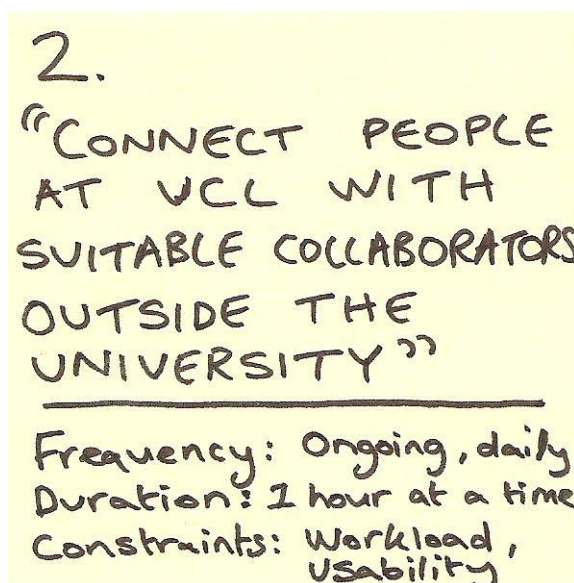 2.
“CONNECT PEOPLE
AT UCL WITH
SUITABLE COLLABORATORS
OUTSIDE THE
UNIVERSITY”
Frequency: Ongoing, daily
Duration: 1 hour at a time
Constraints: Workload,
Usability